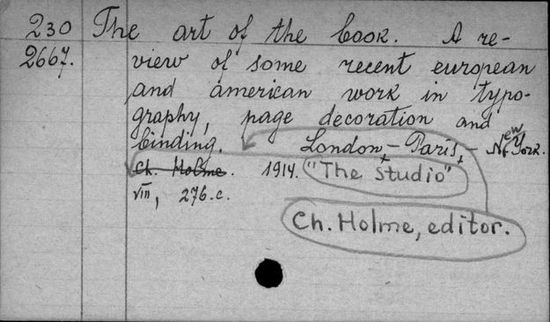 230 The art of the book. A re-
2667. view of some recent european
and american work in typo-
graphy, page decoration and
binding. London - Paris, - New York.
Ch. Holme. 1914. "The Studio"
VIII, 276.c.
Ch. Holme, editor.